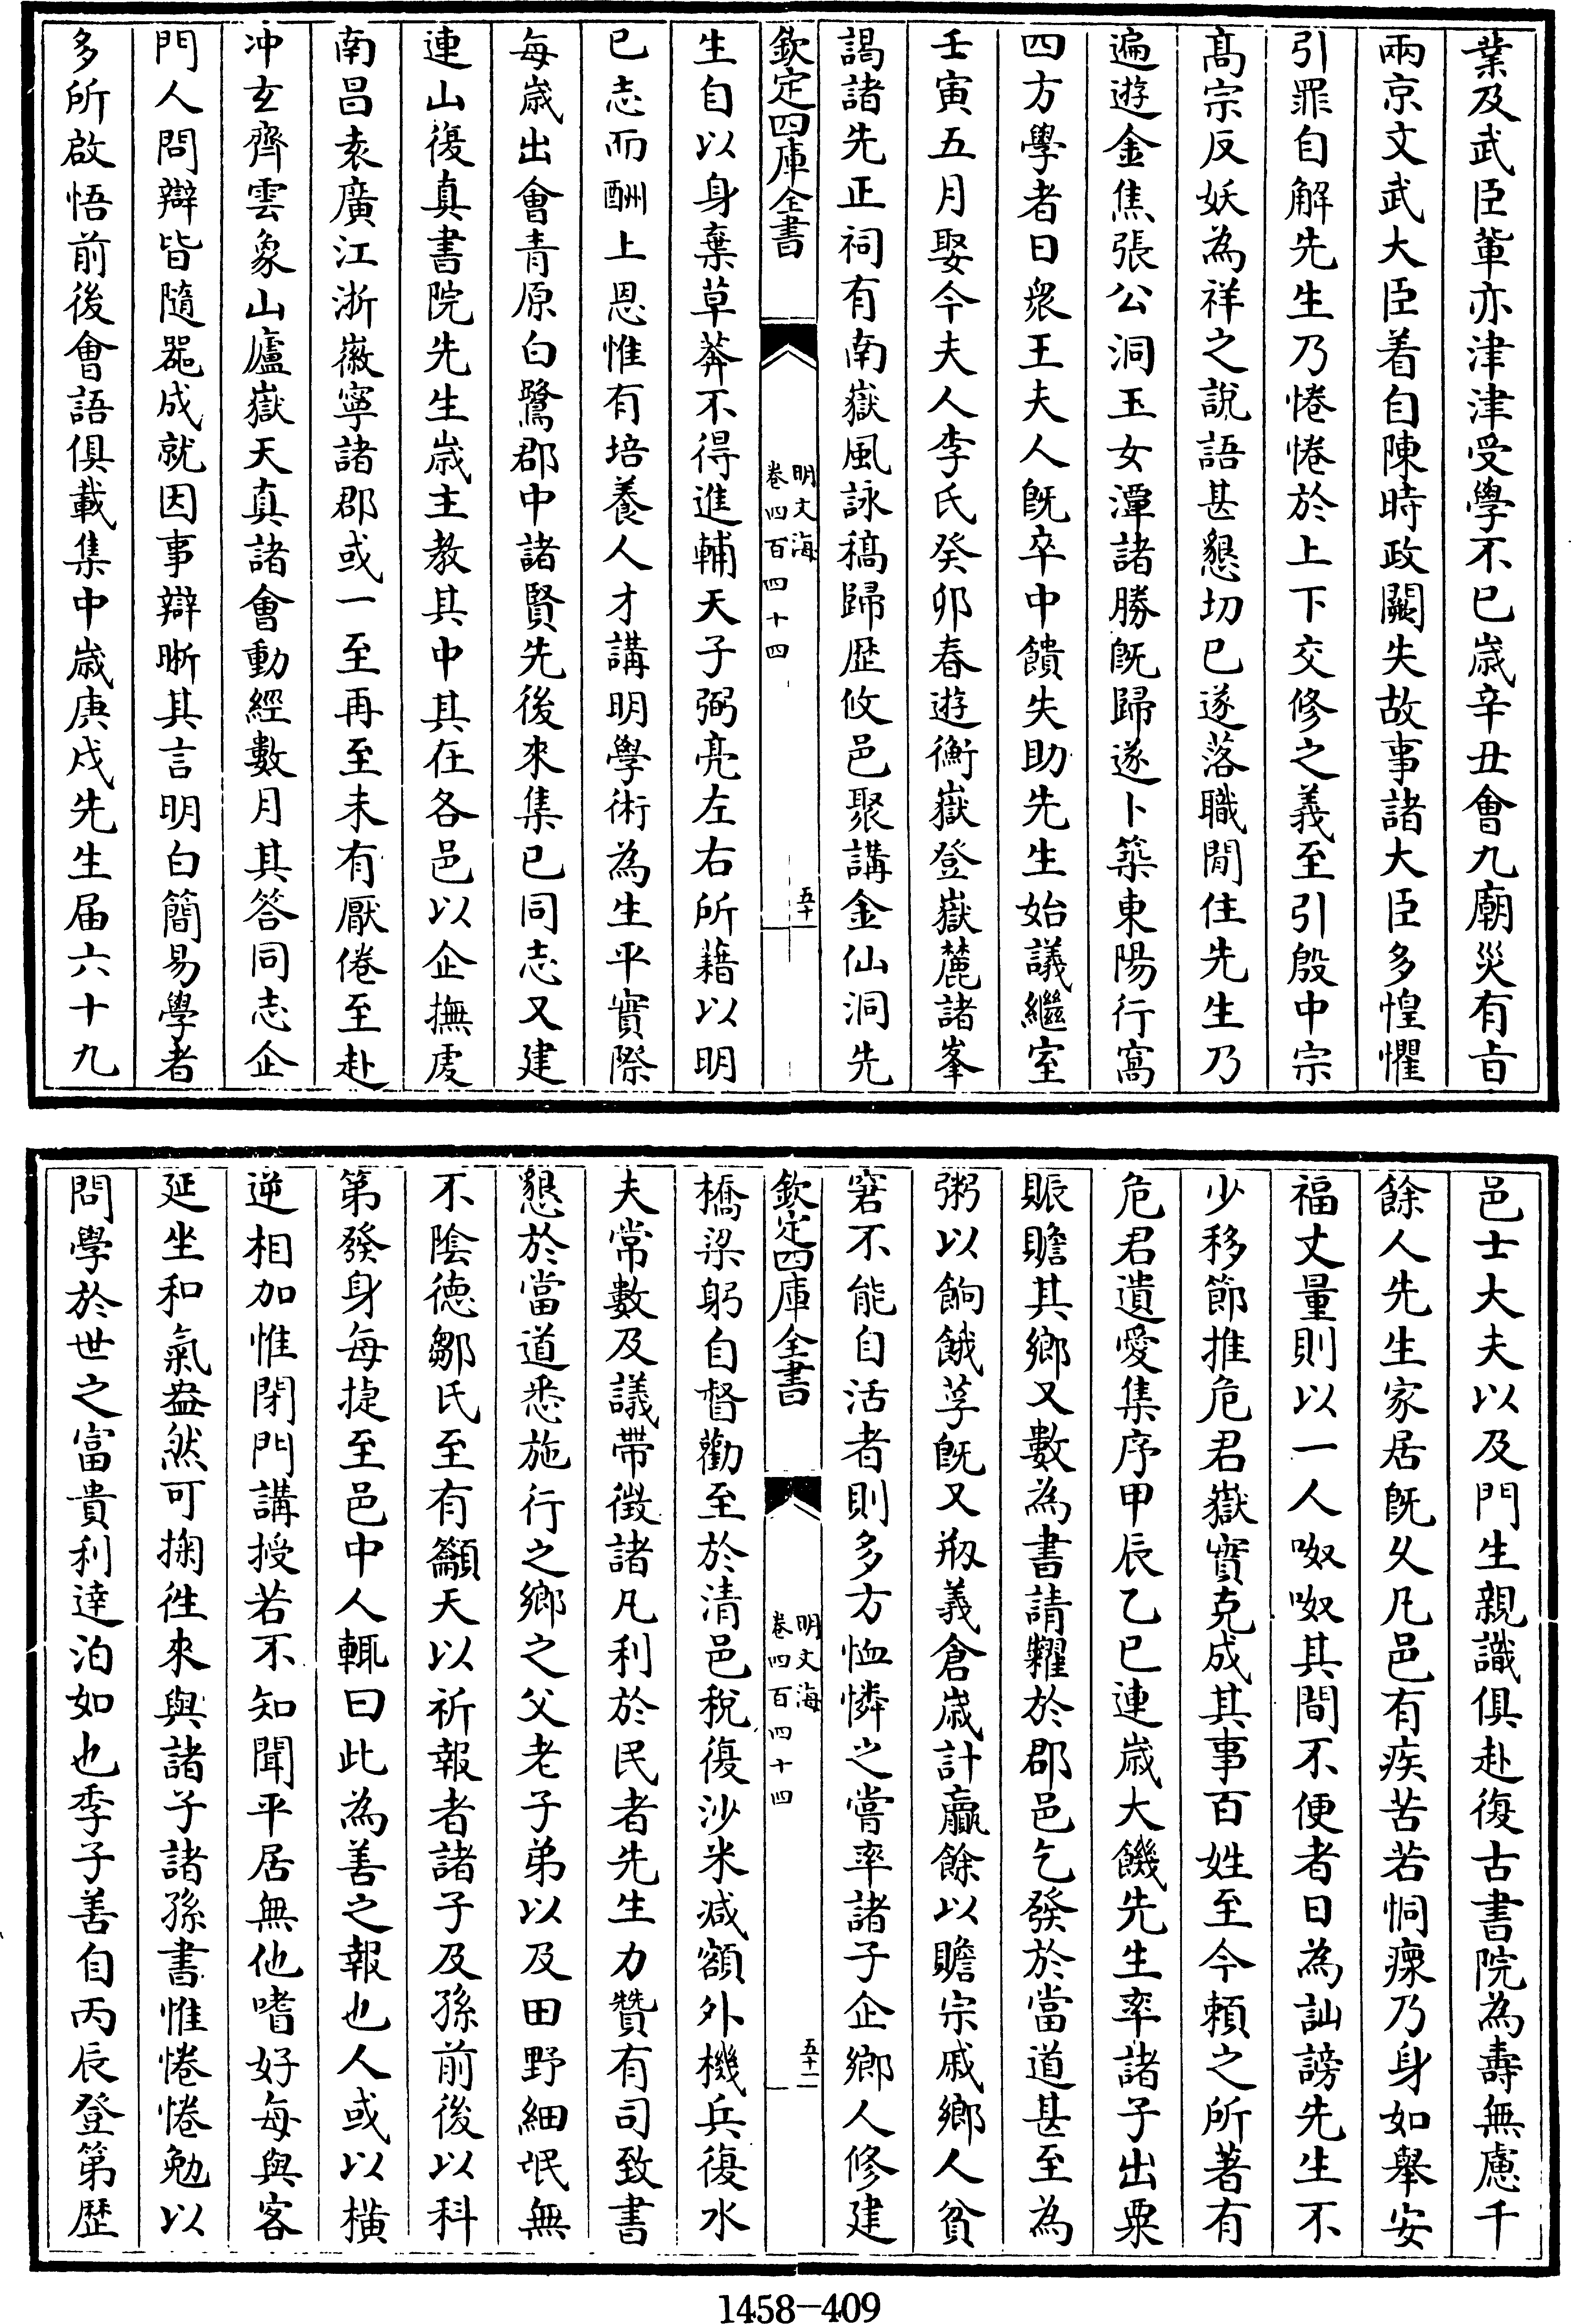 業及武臣輩亦津津受學不已歲辛丑會九廟災有㫖
兩京文武大臣着自陳時政闕失故事諸大臣多惶懼
引罪自解先生乃惓惓於上下交修之義至引殷中宗
髙宗反妖為祥之說語甚懇切已遂落職閒住先生乃
遍遊金焦張公洞玉女潭諸勝旣歸遂卜築東陽行窩
四方學者日衆王夫人旣卒中饋失助先生始議繼室
壬寅五月娶今夫人李氏癸卯春遊衡嶽登嶽麓諸峯
謁諸先正祠有南嶽風詠稿歸歴攸邑聚講金仙洞先
欽定四庫全書
明文海
卷四百四十四
五十一
生自以身棄草莽不得進輔天子弼亮左右所藉以明
已志而酬上恩惟有培養人才講明學術為生平實際
每歲出會青原白鷺郡中諸賢先後來集已同志又建
連山復真書院先生歲主教其中其在各邑以企撫䖏
南昌袁廣江浙徽寧諸郡或一至再至未有厭倦至赴
冲玄齊雲象山廬嶽天真諸會動經數月其答同志企
門人問辯皆隨噐成就因事辯晰其言明白簡易學者
多所啟悟前後會語俱載集中歲庚戌先生届六十九
邑士大夫以及門生親識俱赴復古書院為壽無慮千
餘人先生家居旣乆凡邑有疾苦若恫瘝乃身如舉安
福丈量則以一人呶呶其間不便者日為訕謗先生不
少移節推危君嶽實克成其事百姓至今頼之所著有
危君遺愛集序甲辰乙巳連歲大饑先生率諸子出粟
賑贍其鄉又數為書請糴於郡邑乞發於當道甚至為
粥以餉餓莩旣又剏義倉歲計贏餘以贍宗戚鄉人貧
窘不能自活者則多方恤憐之嘗率諸子企鄉人修建
欽定四庫全書
明文海
卷四百四十四
五十二
橋梁躬自督勸至於清邑税復沙米减額外機兵復水
夫常數及議帶徴諸凡利於民者先生力贊有司致書
懇於當道悉施行之鄉之父老子弟以及田野細氓無
不隂徳鄒氏至有籲天以祈報者諸子及孫前後以科
第發身每捷至邑中人輒曰此為善之報也人或以橫
逆相加惟閉門講授若不知聞平居無他嗜好每與客
延坐和氣盎然可掬徃來與諸子諸孫書惟惓惓勉以
問學於世之富貴利逹泊如也季子善自丙辰登第歴
1458-409